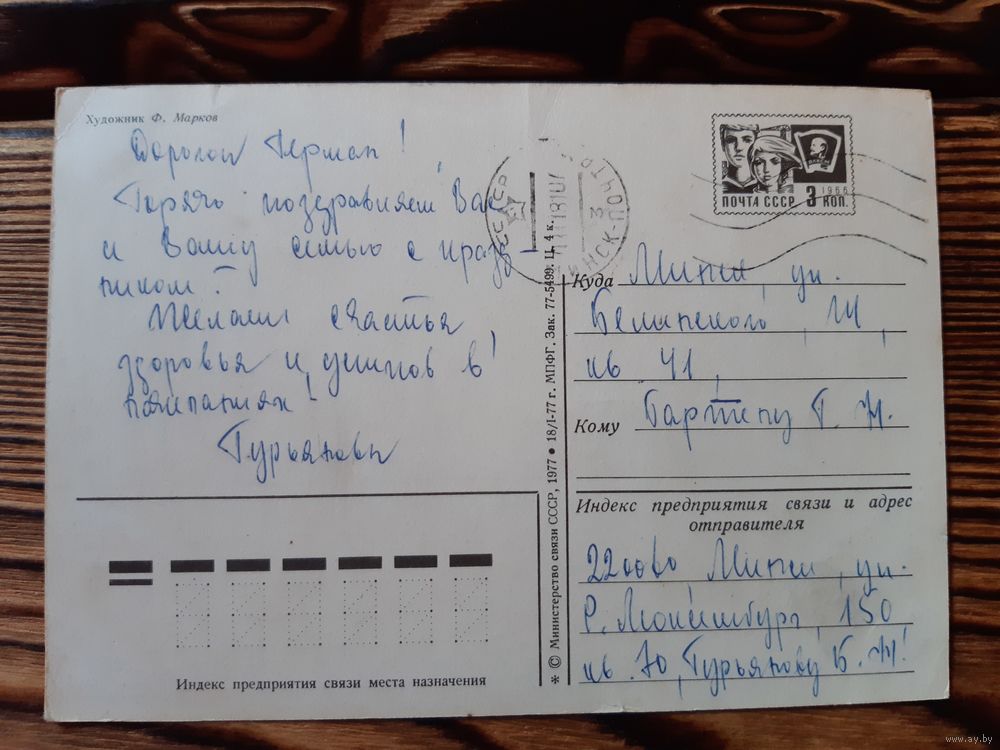 Художник Ф. Марков
Дорогой Герман!
Горячо поздравляем Вас
и Вашу семью с празд-
ником!
Желаем счастья
здоровья и успехов в
Гурьяновы
Индекс предприятия связи места назначения
* © Министерство связи СССР, 1977 • 18/I-77 г. МПФГ. Зак. 77-5499. Ц. 4 к.
ПОЧТА СССР 3 КОП.
1966
ПОЧТ
Куда Минск, ул.
кв 41,
Кому Г.
Индекс предприятия связи и адрес
отправителя
Минск, ул.
150
кв. 70, Гурьянову Б.
www.ay.by